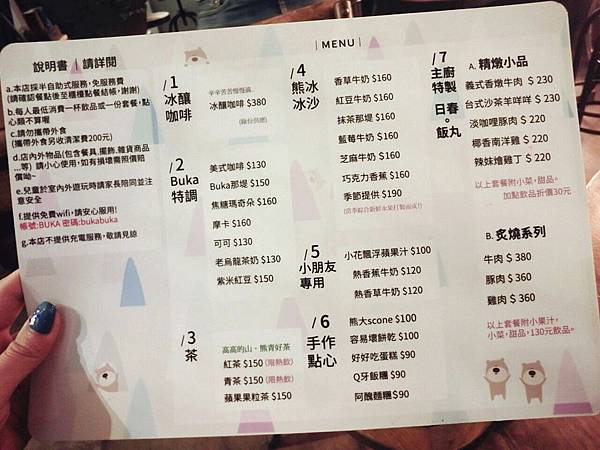 說明書｜請詳閱
a.本店採半自助式服務，免服務費
(請確認餐點後至櫃檯點餐結帳，謝謝)
b.每人最低消費一杯飲品或一份套餐，點
心類不算喔
c.請勿攜帶外食
(攜帶外食另收清潔費200元)
d.店內外物品(包含餐具,擺飾,雜貨商品
...等) 請小心使用，如有損壞需照價賠
償呦~
e.兒童於室內外遊玩時請家長陪同並注
意安全
f.提供免費wifi，請安心服用!
帳號:BUKA 密碼:bukabuka
g.本店不提供充電服務，敬請見諒
| MENU |
/1
冰釀
咖啡
辛辛苦苦慢慢滴..
冰釀咖啡 $380
(錄份供應)
/2
Buka
特調
美式咖啡 $130
Buka那堤 $150
焦糖瑪奇朵 $160
摩卡 $160
可可 $130
老烏龍茶奶 $130
紫米紅豆 $150
/3
茶
高高的山・熊青好茶
紅茶 $150 (限熱飲)
青茶 $150 (限熱飲)
蘋果果粒茶 $150
/4
熊冰
冰沙
香草牛奶 $160
紅豆牛奶 $160
抹茶那堤 $160
藍莓牛奶 $160
芝麻牛奶 $160
巧克力香蕉 $160
季節提供 $190
/5
小朋友
專用
小花飄浮蘋果汁 $100
熱香蕉牛奶 $120
熱香草牛奶 $120
/6
手作
點心
熊大scone $100
容易壞餅乾 $100
好好吃蛋糕 $90
Q牙飯糰 $90
阿醜麵糰$90
/7
主廚
特製
日春。飯丸
A. 精燉小品
義式香燉牛肉 $ 230
台式沙茶羊咩咩 $ 230
淡咖哩豚肉 $ 220
椰香南洋雞 $ 220
辣妹燴雞丁 $ 220
以上套餐附小菜，甜品。
加點飲品折價30元
B. 炙燒系列
牛肉 $ 380
豚肉 $ 360
雞肉 $ 360
以上套餐附小果汁，
小菜，甜品，130元飲品。